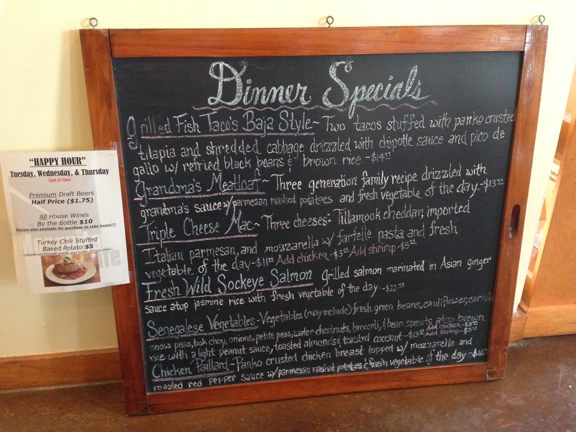 Dinner Specials
Grilled Fish Taco's Baja Style - Two tacos stuffed with panko crusted
tilapia and shredded cabbage drizzled with chipotle sauce and pico de
gallo w/ refried black beans & brown rice -
Grandma's Meatloaf - Three generation family recipe drizzled with
grandma's sauce w/ parmesan mashed potatoes and fresh vegetable of the day -
Triple Cheese Mac - Three cheeses: Tillamook cheddar, imported
Italian parmesan, and mozzarella w/ farfelle pasta and fresh
vegetable of the day - Add chicken - Add shrimp -
Fresh Wild Sockeye Salmon Grilled salmon marinated in Asian ginger
sauce atop jasmine rice with fresh vegetable of the day -
Senegalese Vegetables - Vegetables (may include) fresh green beans, cauliflower,
snow peas, bok choy, onions, petite peas, water chestnuts, broccoli, & bean sprouts atop brown
rice with a light peanut sauce, toasted almonds & toasted coconut - Add chicken Add shrimp
Chicken Paillard - Panko crusted chicken breast topped w/ mozzarella and
roasted red pepper sauce w/ parmesan mashed potatoes & fresh vegetable of the day -
"HAPPY HOUR"
Tuesday, Wednesday, & Thursday
Premium Draft Beers
Half Price ($1.75)
All House Wines
By the Bottle $10
Turkey Chili Stuffed
Baked Potato $5